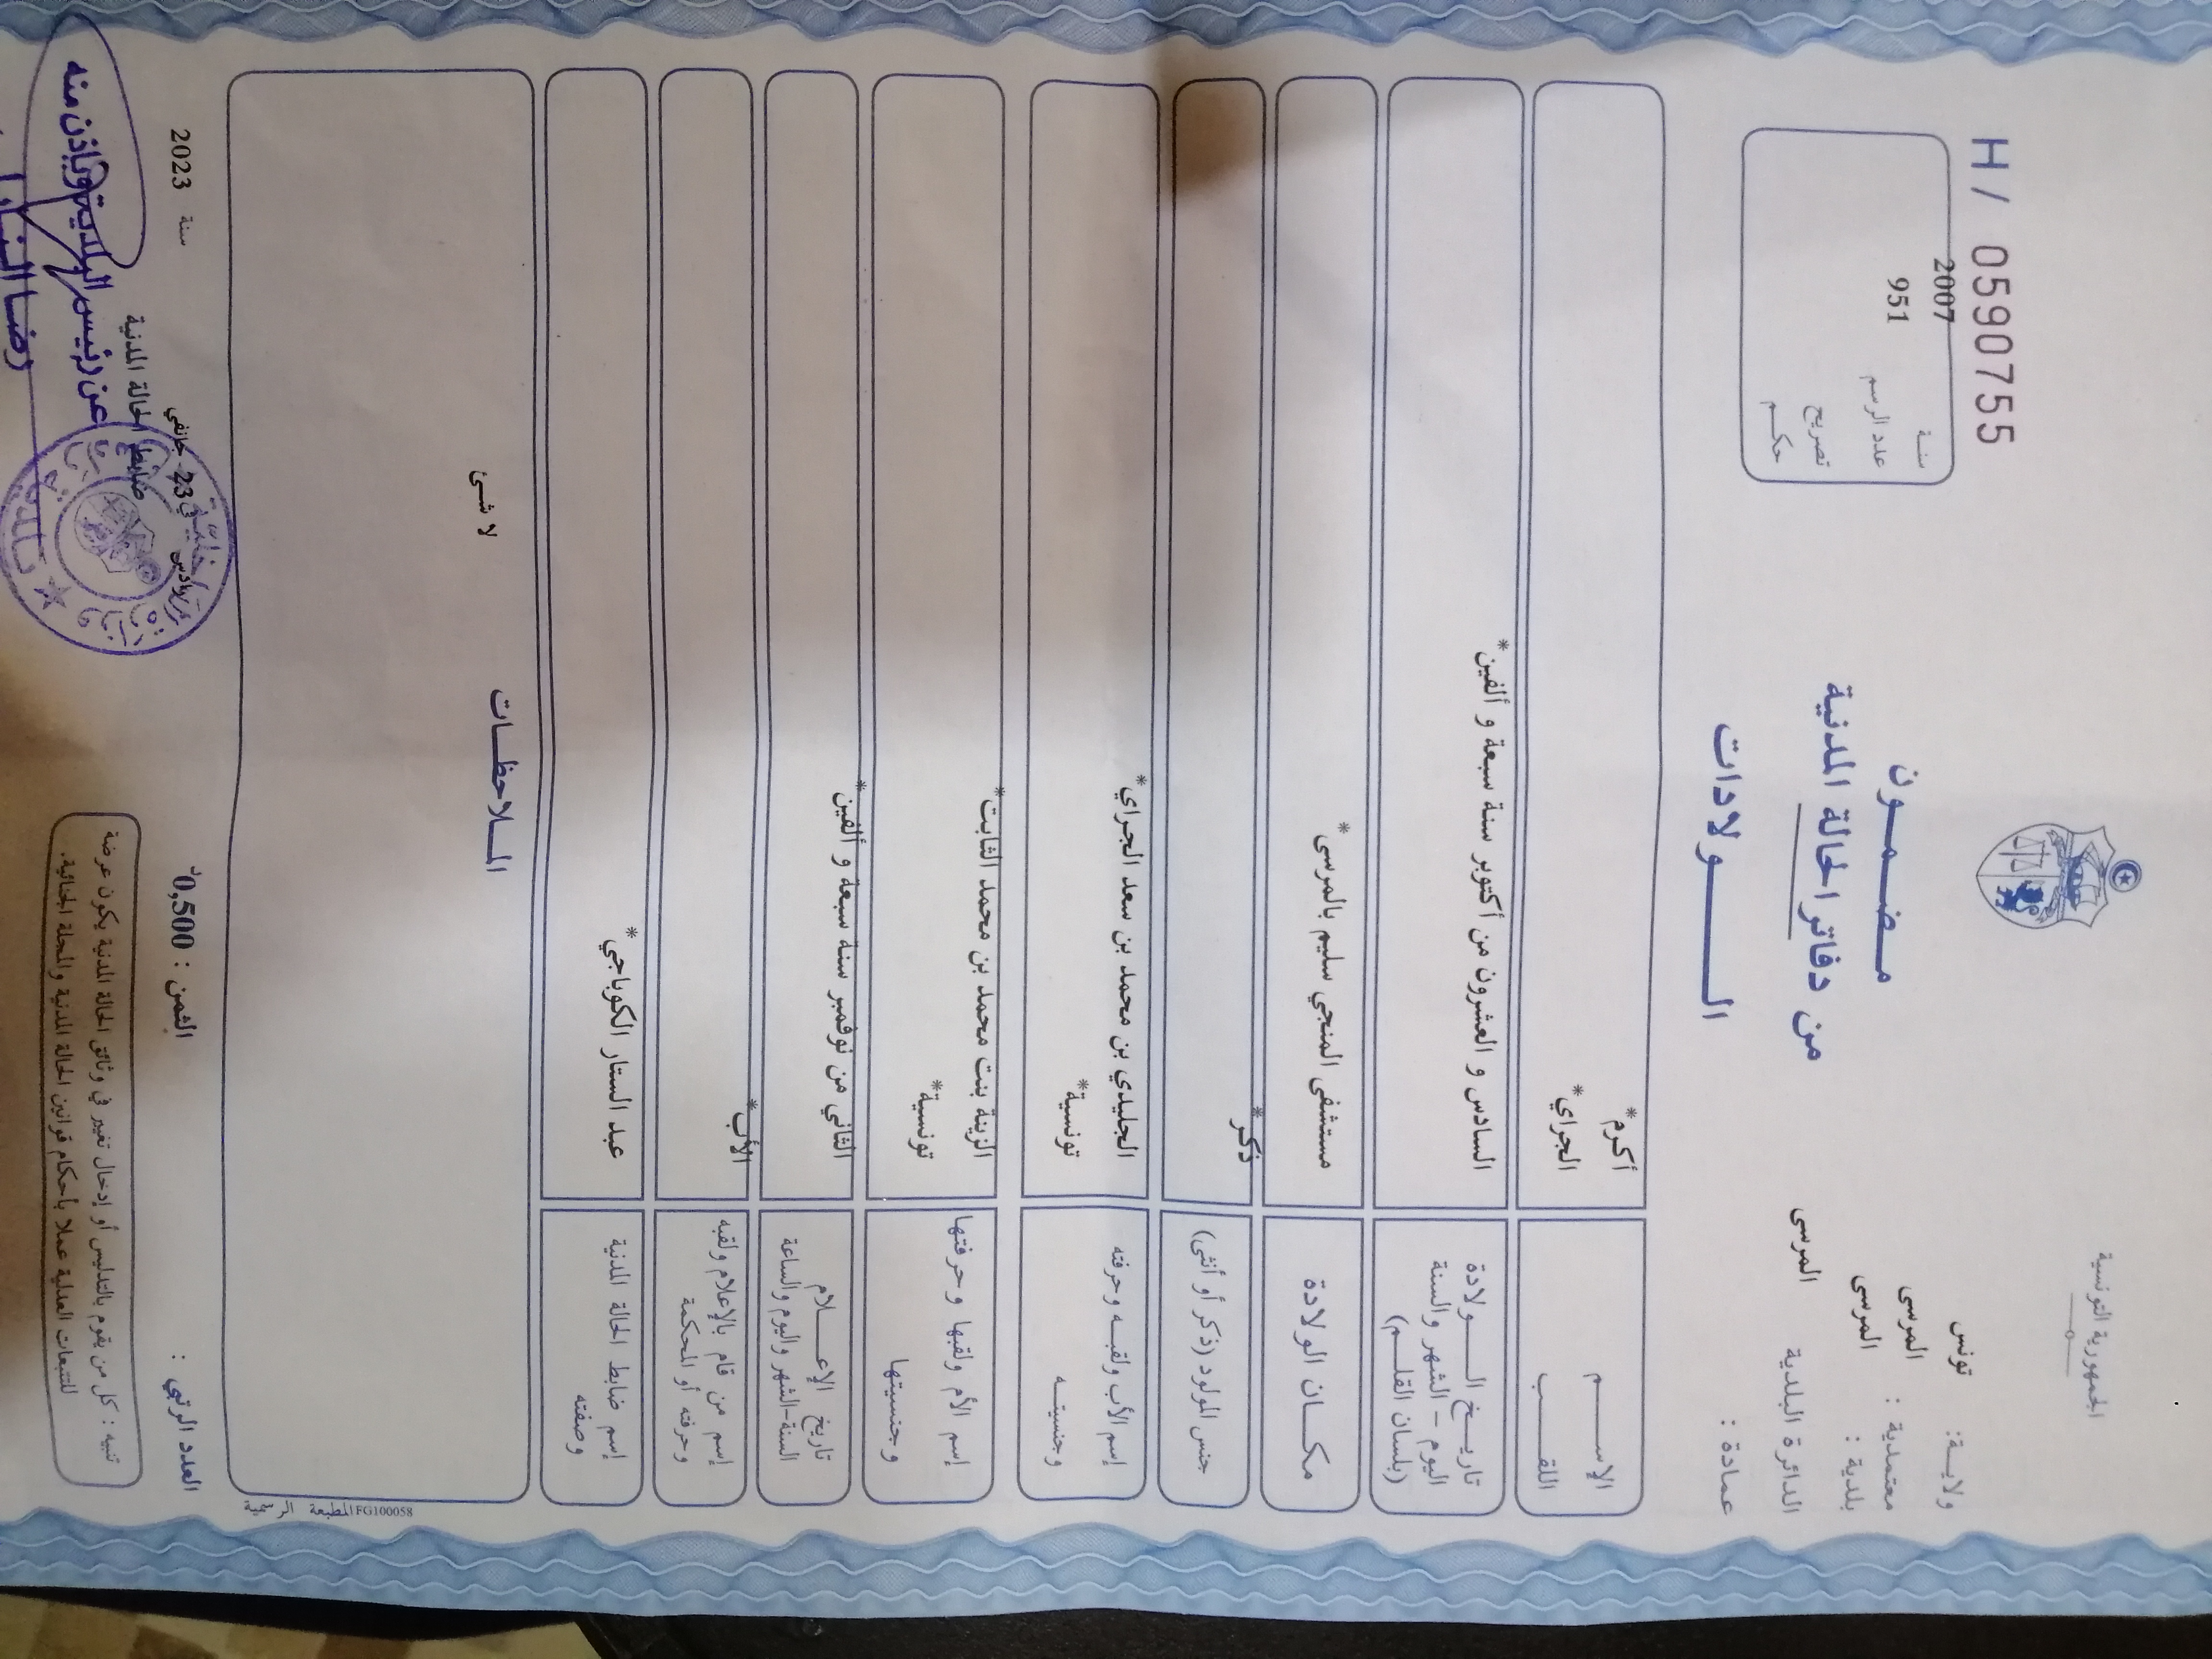 الجمهورية التونسية
ولايـة: تونس
معتمدية : المرسى
بلدية : المرسى
الدائرة البلدية المرسى
عمادة :
مـضـمـون
من دفاتر الحالة المدنية
الـــولادات
H/ 0590755
سنـة 2007
عدد الرسم 951
تصريح
حكـم
الإســـم أكرم*
اللقـــب الجراي*
تاريـخ الـــولادة
اليوم – الشهر والسنة
(بلسان القلـم)
السادس و العشرون من أكتوبر سنة سبعة و ألفين*
مكـان الولادة مستشفى المنجي سليم بالمرسى*
جنس المولود (ذكر أو أنثى) ذكر*
إسم الأب ولقبـه وحرفته
وجنسيتـه
الجليدي بن محمد بن سعد الجراي*
تونسية*
إسم الأم ولقبها وحرفتها
وجنسيتها
الزينة بنت محمد بن محمد الثابت*
تونسية*
تاريخ الإعـــلام
السنة-الشهر واليوم والساعة
الثاني من نوفمبر سنة سبعة و ألفين*
إسم من قام بالإعلام ولقبه
وحرفته أو المحكمة
الأب*
إسم ضابط الحالة المدنية
وصفته
عبد الستار الكوباجي*
المـلاحظـات
لا شئ
FG100058 المطبعة الرسمية
العدد الرتبي :
الثمن : 0,500د
في 23 جانفي سنة 2023
ضابط الحالة المدنية
عن رئيس البلدية وبإذن منه
رضا
تنبيه : كل من يقوم بالتدليس أو إدخال تغيير في وثائق الحالة المدنية يكون عرضة
للتتبعات العدلية عملا بأحكام قوانين الحالة المدنية والمجلة الجنائية.